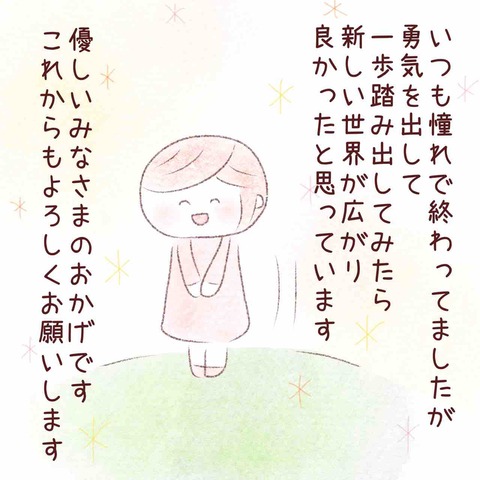 いつも憧れで終わってましたが
勇気を出して
一歩踏み出してみたら
新しい世界が広がり
良かったと思っています
優しいみなさまのおかげです
これからもよろしくお願いします